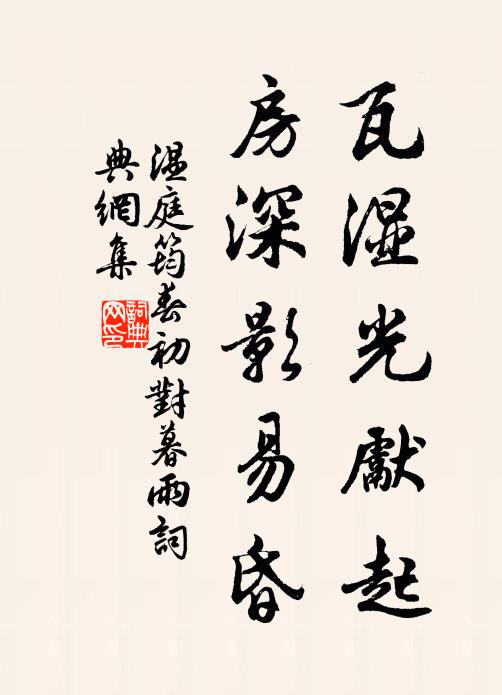 瓦湿光獻起
房深影易昏
温庭筠春初對暮雨詞
典網集
詞典
网印